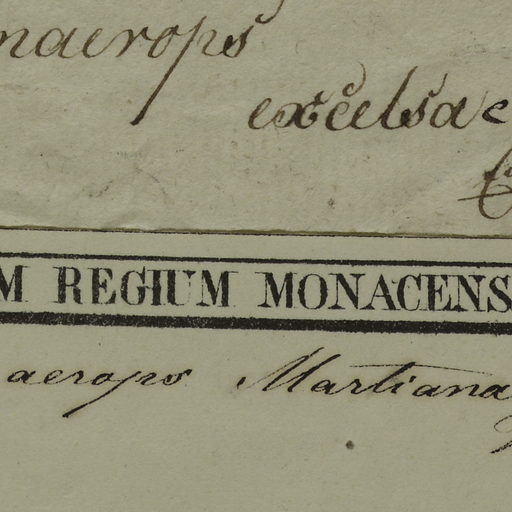 naerops
excelsa
M REGIUM MONACENS
aerops Martiana